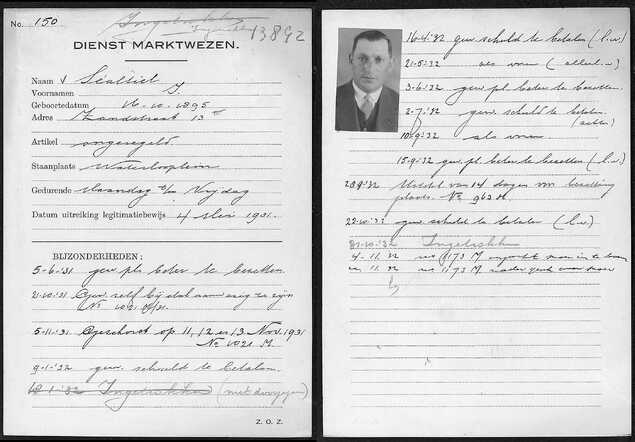 No. 150
Ingetrokken
13892
DIENST MARKTWEZEN.
Naam
Voornamen J.
Geboortedatum 16.10.1895
Adres Zandstraat 13
Artikel ongeregeld
Staanplaats Waterlooplein
Gedurende Maandag t/m Vrijdag
Datum uitreiking legitimatiebewijs 4 Mei 1931.
BIJZONDERHEDEN:
5-6-'31 gew. pl. beter te bezetten.
21-10-'31 Gew. zelf bij stal aanwezig te zijn
No 1021 M/31.
5-11-'31 Geschorst op 11, 12 en 13 Nov. 1931
No 1021 M.
9-1-'32 gew. schuld te betalen.
18-1-'32 Ingetrokken (niet doorgegaan)
Z. O. Z.
16-4-'32 gew. schuld te betalen (l.w.)
21-5-'32 als voren
3-6-'32 gew. pl. beter te bezetten.
2-7-'32 gew. schuld te betalen.
10-9-'32 als voren
15-9-'32 gew. pl. beter te bezetten (l.w.)
'32 14 dagen om bezetting
plaats. No 963 M.
22-10-'32 gew. schuld te betalen (l.w.)
31-10-'32 Ingetrokken
4-11-'32 1173 M
11-'32 1173 M